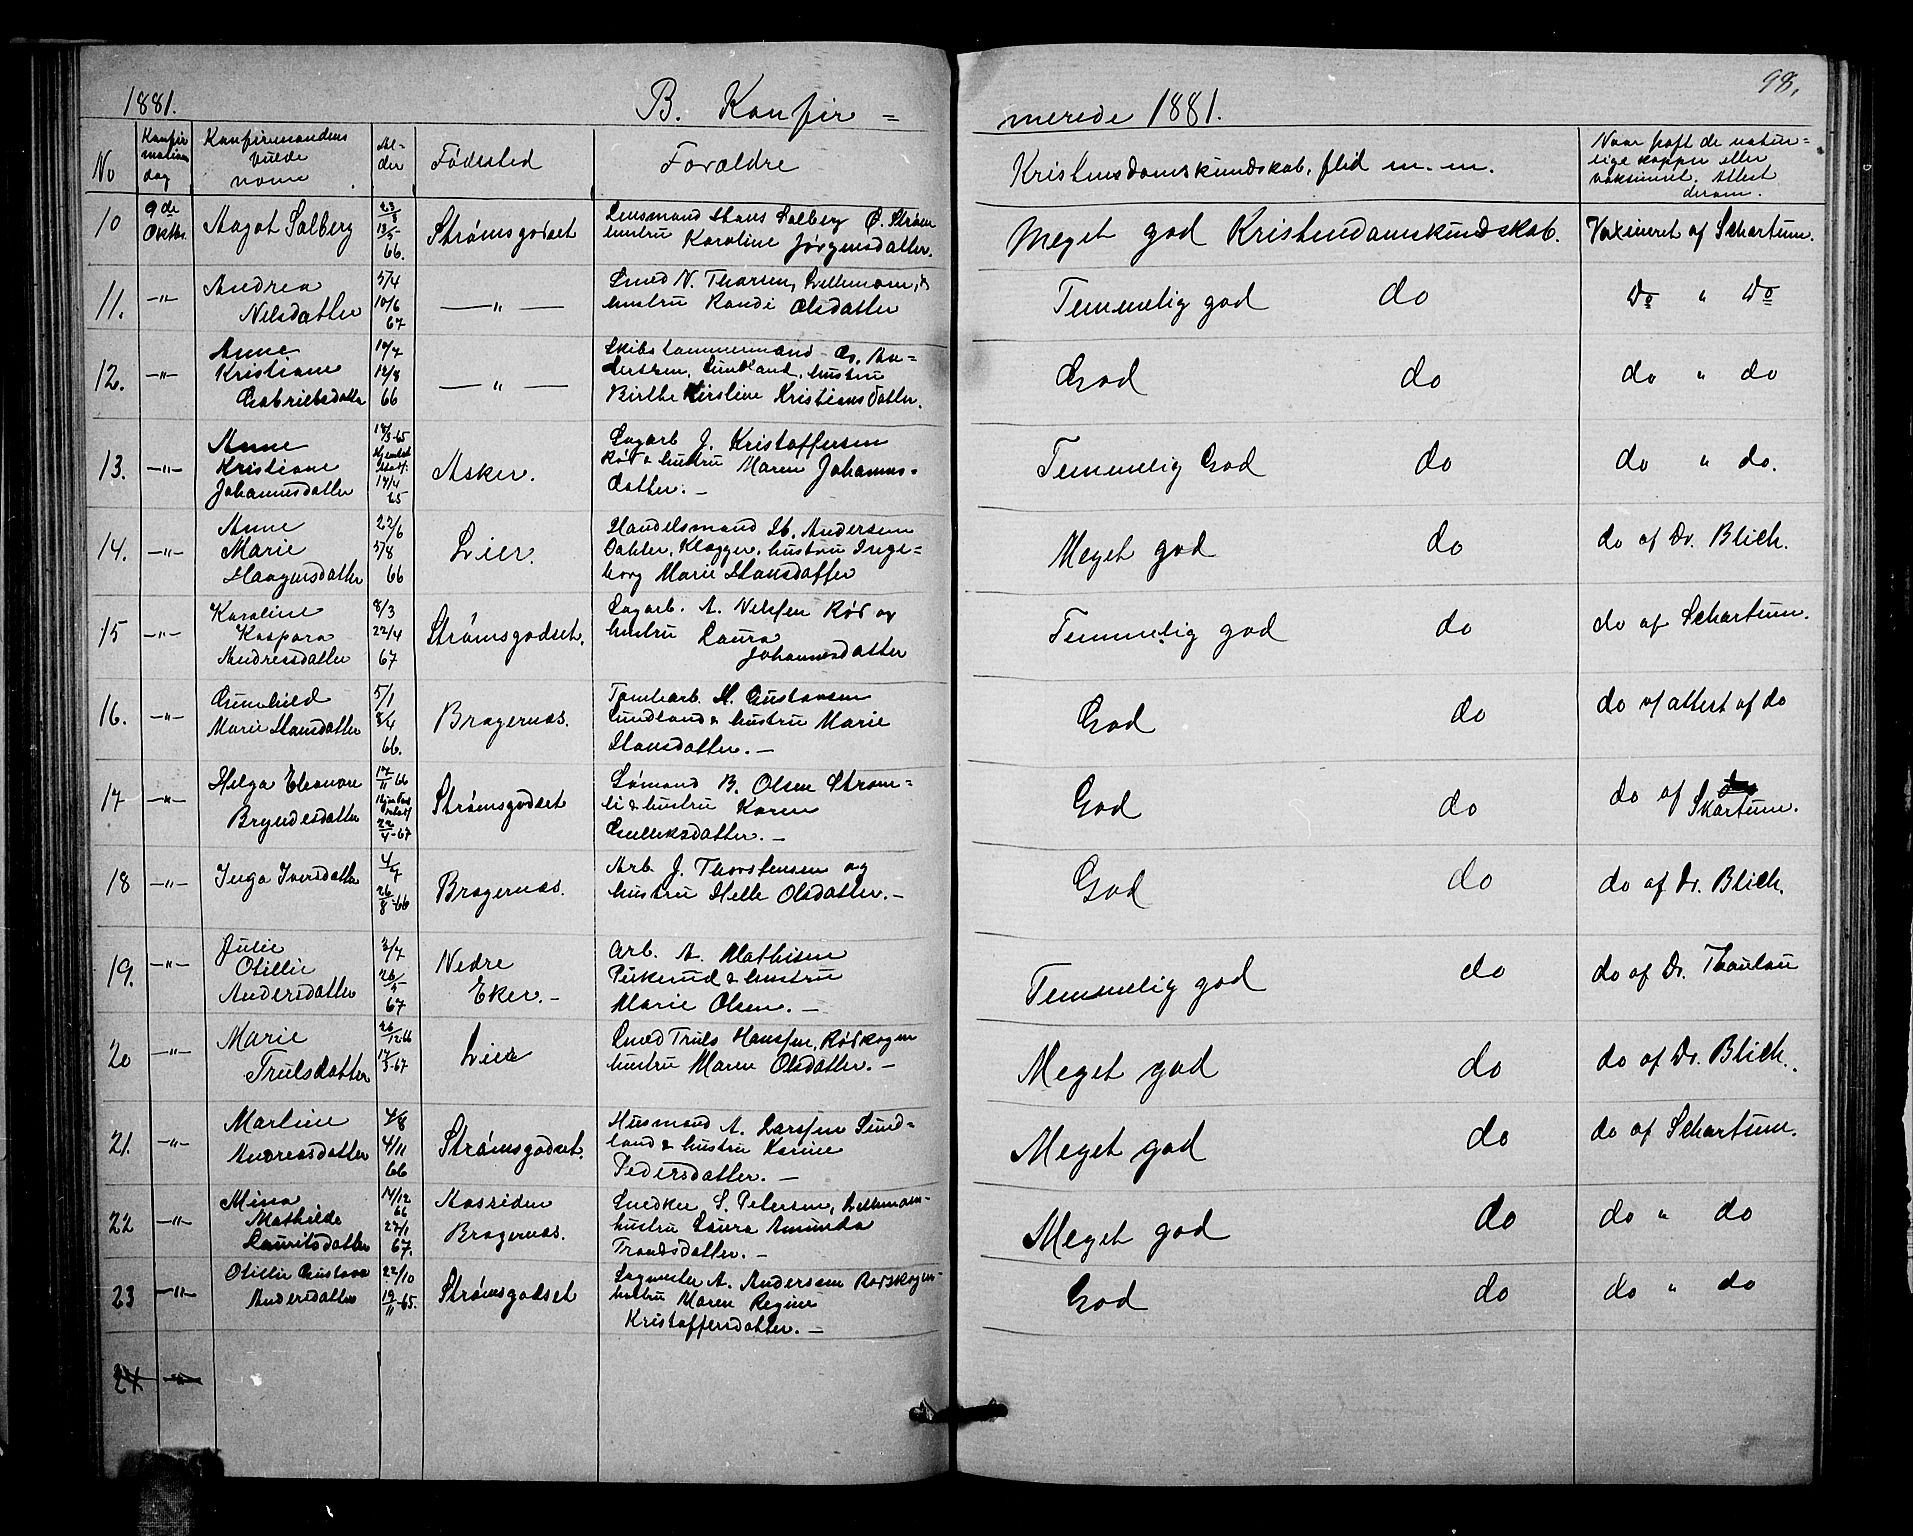 1881.
B. Konfir =
merede 1881.
98.
No
Konfir
mations
dag
Konfirmandens
fulde
navn
Al-
der
Fødested
Forældre
Kristendomskundskab, flid m. m.
Naar haft de natur=
lige kopper eller
vaksineret. Attest
derom.
10
9de
Oktbr.
Aagot Solberg
23/3
13/5
66.
Strømsgodset
Lensmand Hans Solberg Ø. Strøm
hustru Karoline Jørgensdatter.
Meget god Kristendomskundskab.
Vaxineret af Schartum.
11.
—"—
Andrea
Nilsdatter
5/4
10/6
67
— " —
Smed N. Thorsen,
hustru Randi Olsdatter
Temmelig god do
Do " Do
12.
—"—
Anne
Kristiane
Gabrielsdatter
12/8
66
— " —
Skibstømmermand G. An=
dersen, Sundland, hustru
Birthe Kirstine Kristiansdatter.
God do
do " do
13.
—"—
Anne
Kristiane
Johannesdatter
18/3 65
17/4
65
Asker.
Sagarb J. Kristoffersen
Rød & hustru Maren Johannes=
datter. —
Temmelig God do
do " do.
14.
—"—
Anne
Marie
Haagensdatter
22/6
5/8
66
Lier.
Handelsmand H. Andersen
Dahler, Klopper, hustru Inge=
borg Marie Hansdatter
Meget god do
do af Dr. Blich.
15
—"—
Karoline
Kaspara
Andreasdatter
8/3
22/4
67
Strømsgodset.
Sagarb. A. Nilssen Rød og
hustru Laura
Johannesdatter
Temmelig god do
do af Schartum.
16.
—"—
Gunhild
Marie Hansdatter
5/1
8/4
66.
Bragernæs.
Tomtearb. H. Gustavsen
Sundland & hustru Marie
Hansdatter. —
God do
do v/ attest af do
17
—"—
Helga Eleonore
Bryndesdatter
17/11 66
22/4-67
Strømsgodset
Sømand B. Olsen Strøm=
li & hustru Karen
Gulliksdatter. —
God do
do af
Skartum.
18
—"—
Inga Iversdatter
4/7
26/8-66
Bragernæs.
Arb. J. Thorstensen og
hustru Helle Olsdatter. —
God do
do af Dr. Blich.
19.
—"—
Julie
Otillie
Andersdatter
3/4
26/5
67
Nedre
Eker. —
Arb. A. Mathisen
Pukerud & hustru
Marie Olsen. —
Temmelig god do
do af Dr. Thaulau
20
—"—
Marie
Trulsdatter
26/12 66
17/3-67
Lier
Smed Truls Hanssen, Rødskogen
hustru Maren Olsdatter. —
Meget god do
do af Dr. Blich.
21.
—"—
Martine
Andreasdatter
4/8
4/11
66
Strømsgodset.
Husmand A. Larssen Sund=
land & hustru Karine
Pedersdatter. —
Meget god do
do af Schartum.
22
—"—
Mina
Mathilde
Lauritsdatter
14/12
66
27/1
67.
Aassiden
Bragernæs.
Snedker L. Petersen,
hustru Laura Amunda
Trondsdatter. —
Meget god do
do " do
23
—"—
Otillie Gustava
Andersdatter
22/10
19/11-65.
Strømsgodset
Sagmester A. Andersen Rødskogen-
hustru Maren Regine
Kristoffersdatter. —
God do
do " do
24
—"—